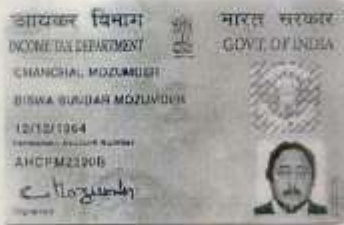 आयकर विभाग
भारत सरकार
INCOME TAX DEPARTMENT
GOVT. OF INDIA
CHANCHAL MOZUMDER
BISWA SUNDAR MOZUMDER
12/12/1964
Permanent Account Number
Signature